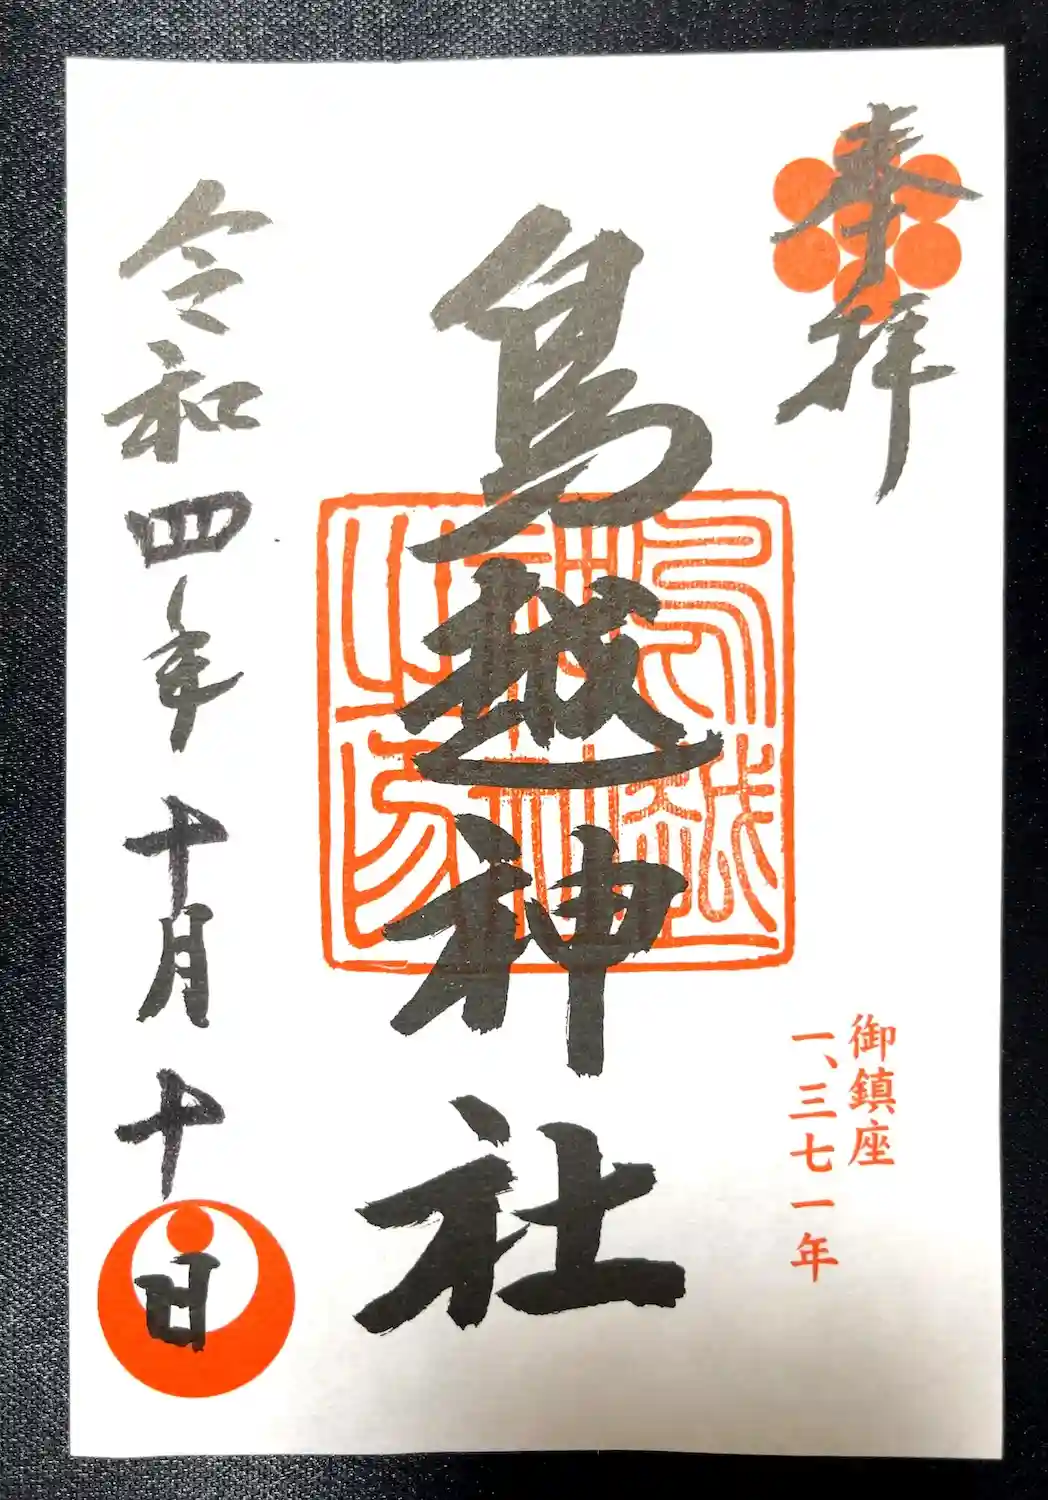 奉拝
御鎮座
一、三七一年
鳥越神社
鳥越
神社
之印
令和四年十月十日